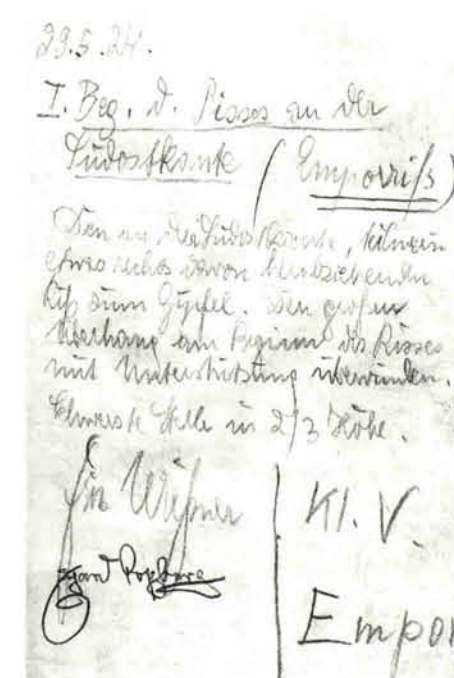 29.5.24.
I. Beg. d. Risses an der
Südostkante (Emporriß)
Den an der Südostkante, teilweise
etwas rechts davon herabziehenden
Riß zum Gipfel. Den großen
Überhang am Beginn des Risses
mit Unterstützung überwunden.
Schwerste Stelle in 2/3 Höhe.
Wießner
Kl. V
Empor